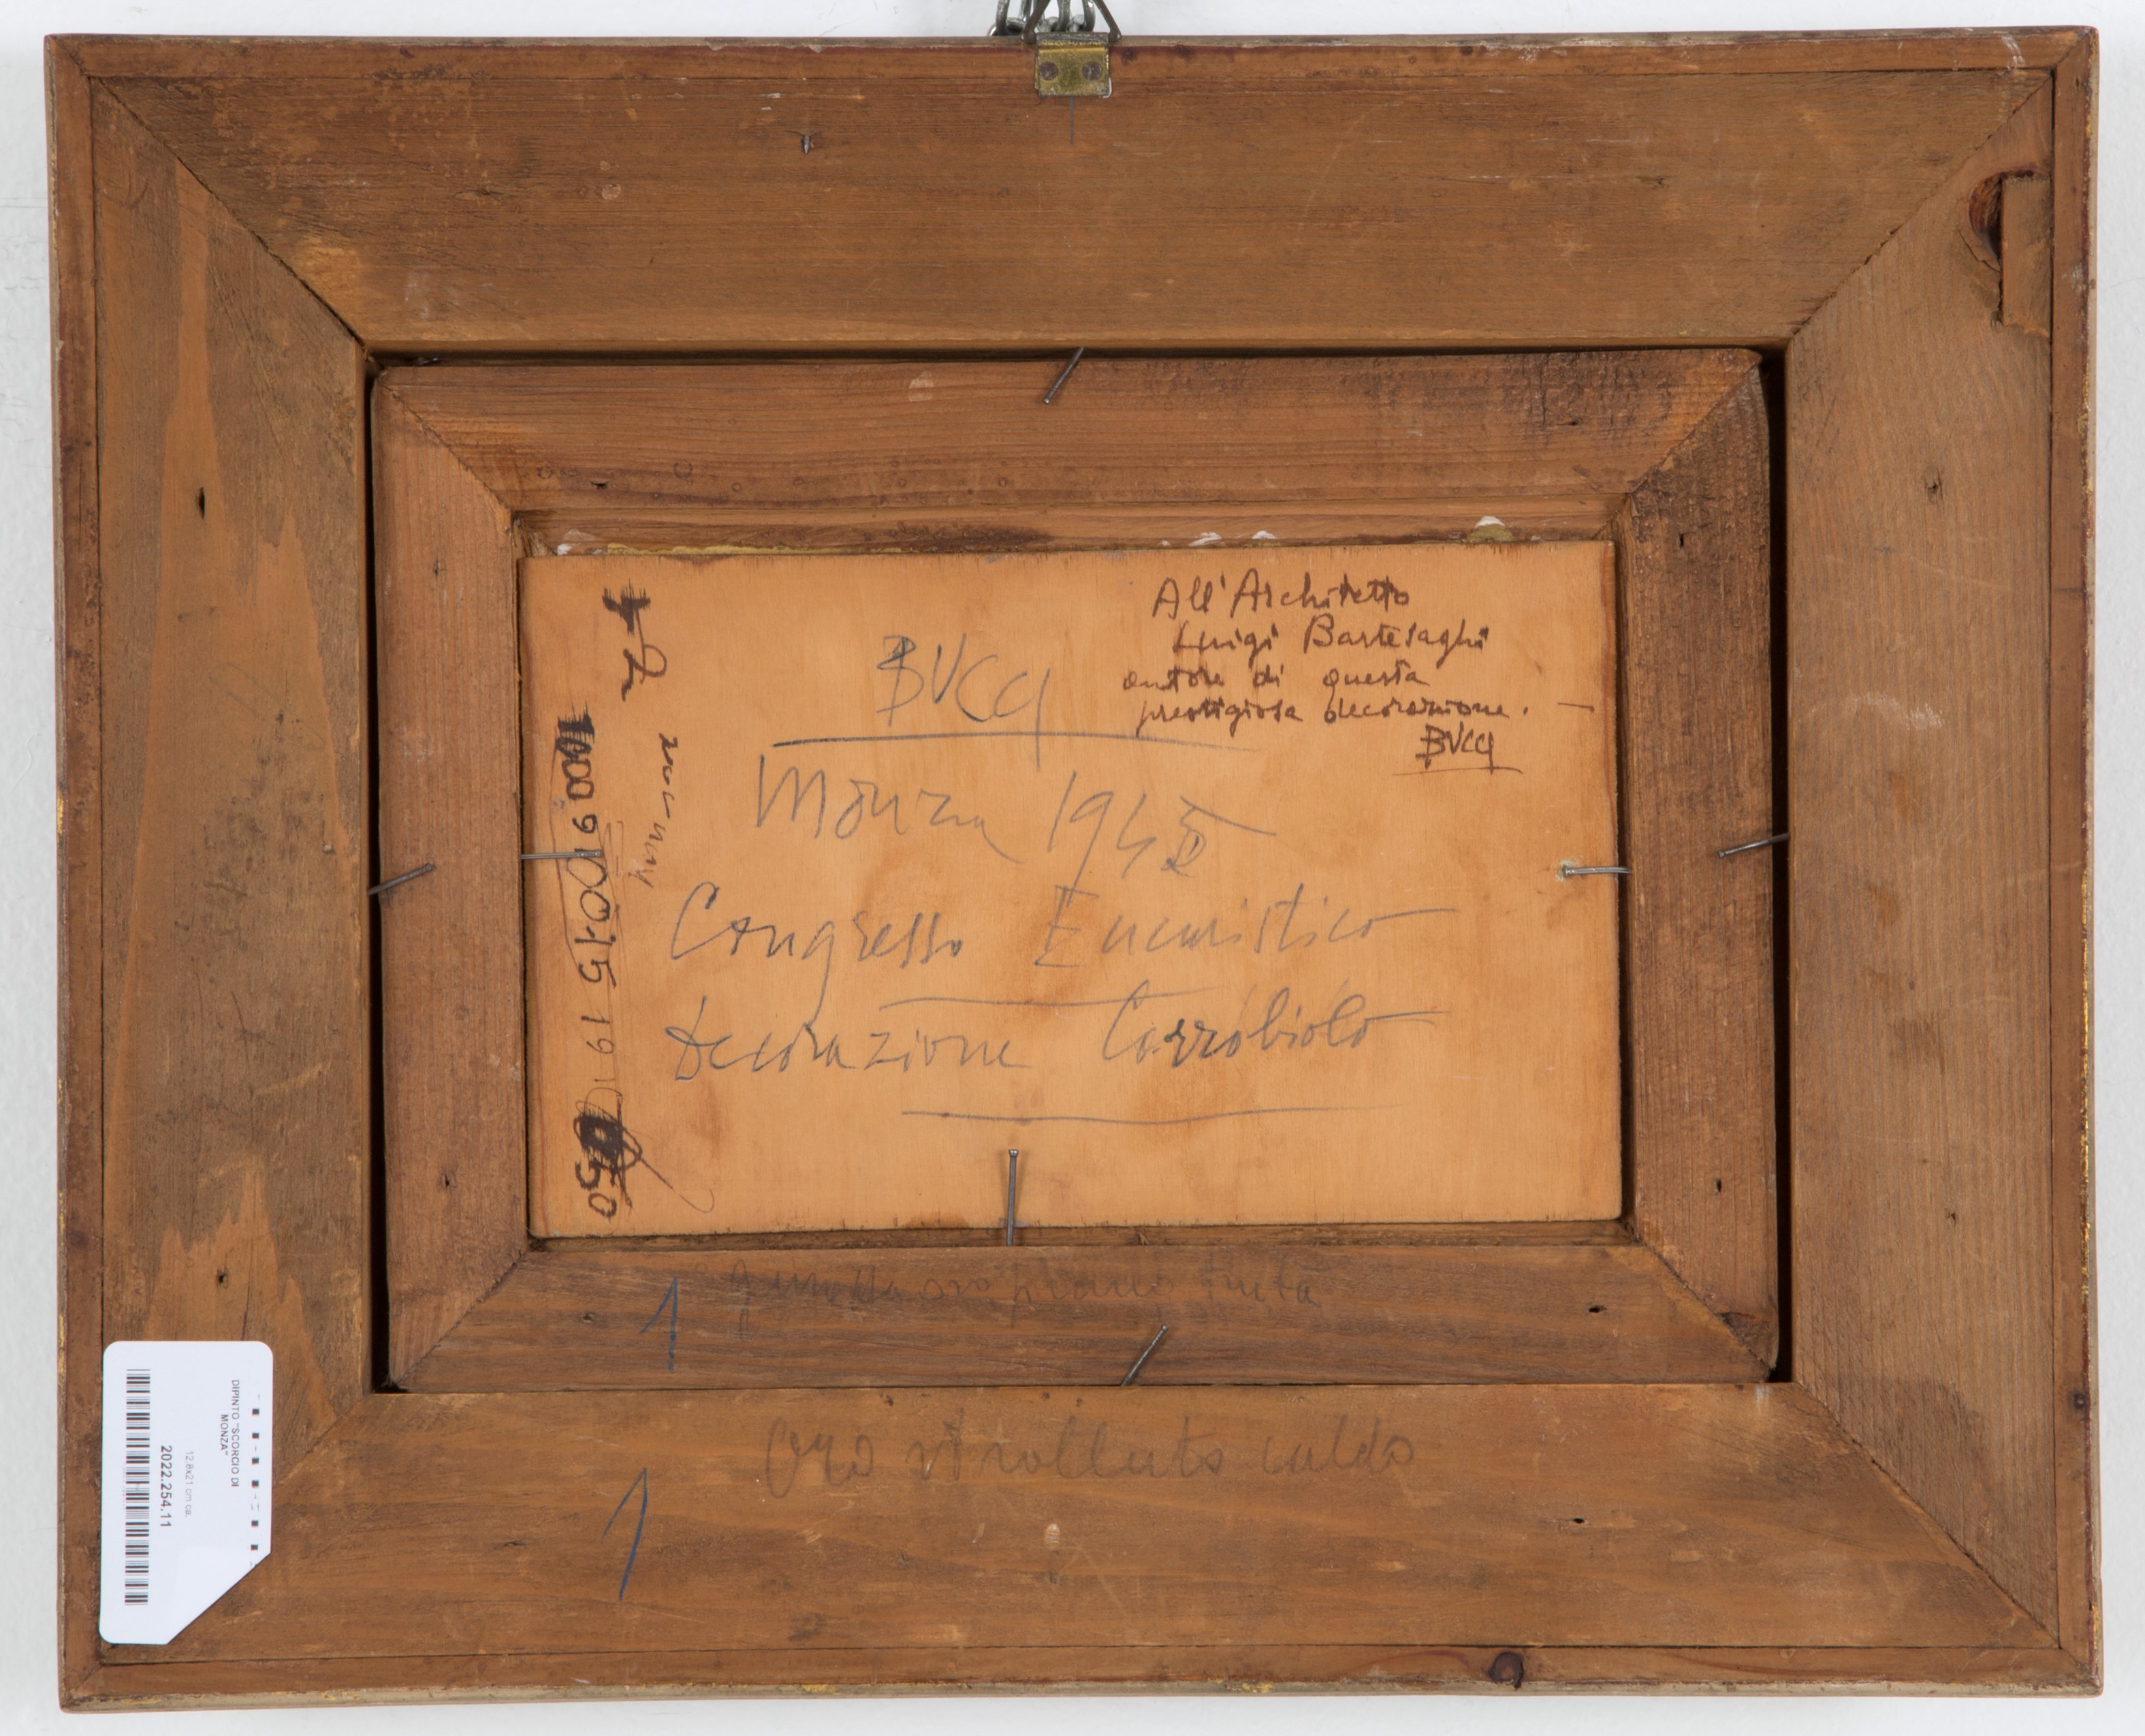 All'Architetto
Luigi Bartesaghi
autore di questa
prestigiosa decorazione. —
BVCCI
BVCCI
Monza 1945
Congresso Eucaristico
Decorazione Carrobiolo
1
1
Oro caldo
DIPINTO "SCORCIO DI
MONZA"
12.8x21 cm ca.
2022.254.11